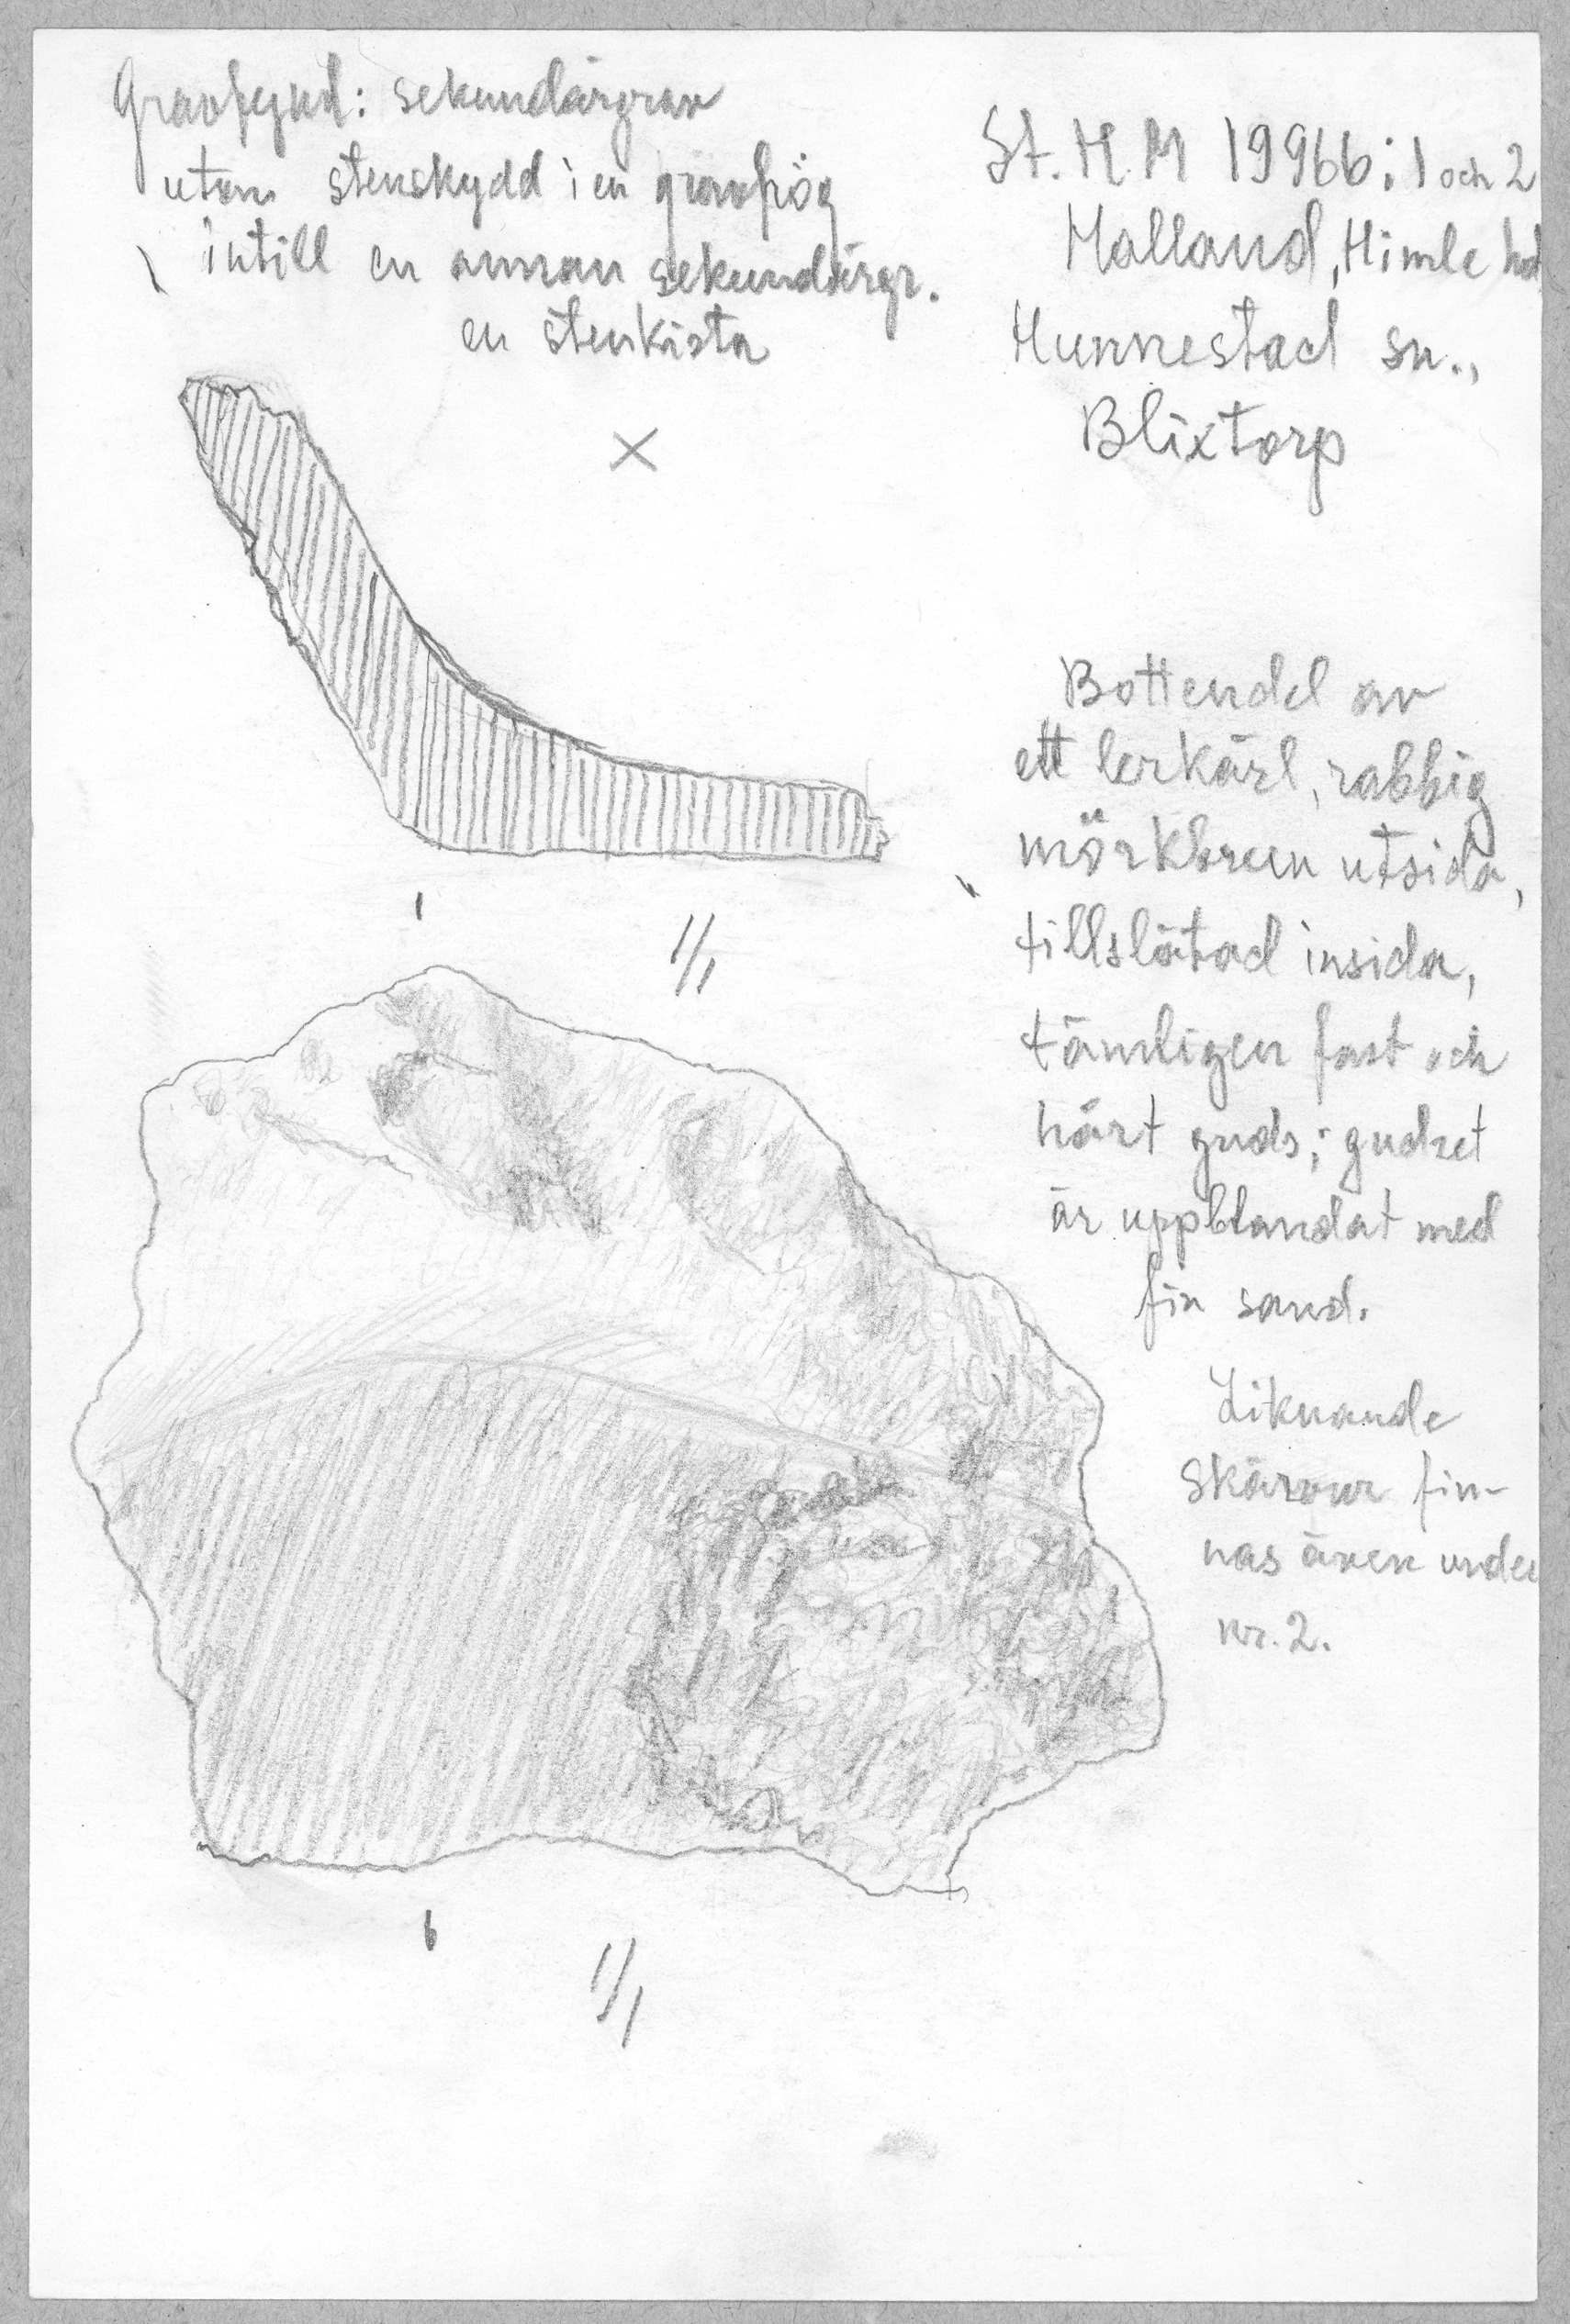 Gravfynd: sekundärgrav
utan stenskydd i en gravhög
intill en annan sekundärgr.
en stenkista
St. H. M 19966: 1 och 2
Halland, Himle hd
Hunnestad sn.,
Blixtorp
X
Bottendel av
ett lerkärl, rabbig
mörkbrun utsida,
tillslätad insida,
tämligen fast och
hårt gods; godset
är uppblandat med
fin sand.
Liknande
skärvor fin-
nas även under
nr. 2.
1
1/1
1/1